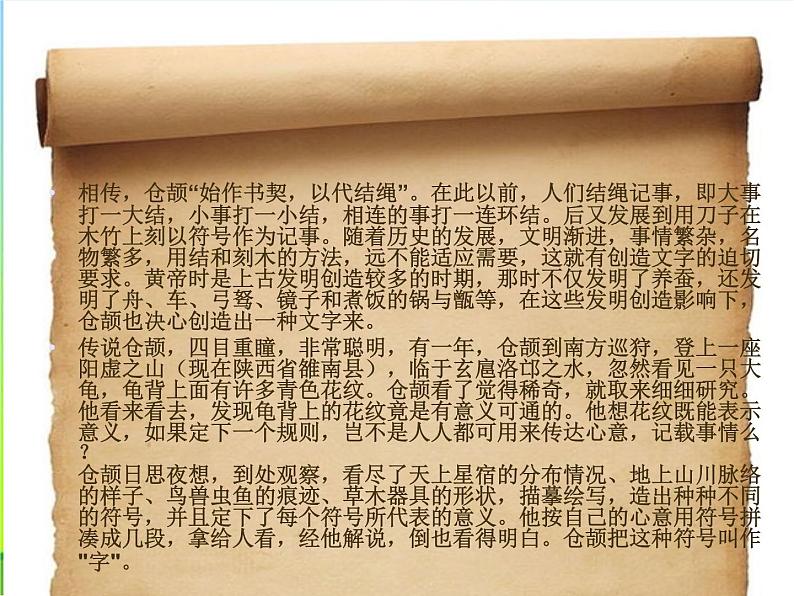 相传，仓颉“始作书契，以代结绳”。在此以前，人们结绳记事，即大事
打一大结，小事打一小结，相连的事打一连环结。后又发展到用刀子在
木竹上刻以符号作为记事。随着历史的发展，文明渐进，事情繁杂，名
物繁多，用结和刻木的方法，远不能适应需要，这就有创造文字的迫切
要求。黄帝时是上古发明创造较多的时期，那时不仅发明了养蚕，还发
明了舟、车、弓驽、镜子和煮饭的锅与甑等，在这些发明创造影响下，
仓颉也决心创造出一种文字来。
传说仓颉，四目重瞳，非常聪明，有一年，仓颉到南方巡狩，登上一座
阳虚之山（现在陕西省雒南县），临于玄扈洛邙之水，忽然看见一只大
龟，龟背上面有许多青色花纹。仓颉看了觉得稀奇，就取来细细研究。
他看来看去，发现龟背上的花纹竟是有意义可通的。他想花纹既能表示
意义，如果定下一个规则，岂不是人人都可用来传达心意，记载事情么
？
仓颉日思夜想，到处观察，看尽了天上星宿的分布情况、地上山川脉络
的样子、鸟兽虫鱼的痕迹、草木器具的形状，描摹绘写，造出种种不同
的符号，并且定下了每个符号所代表的意义。他按自己的心意用符号拼
凑成几段，拿给人看，经他解说，倒也看得明白。仓颉把这种符号叫作
"字"。